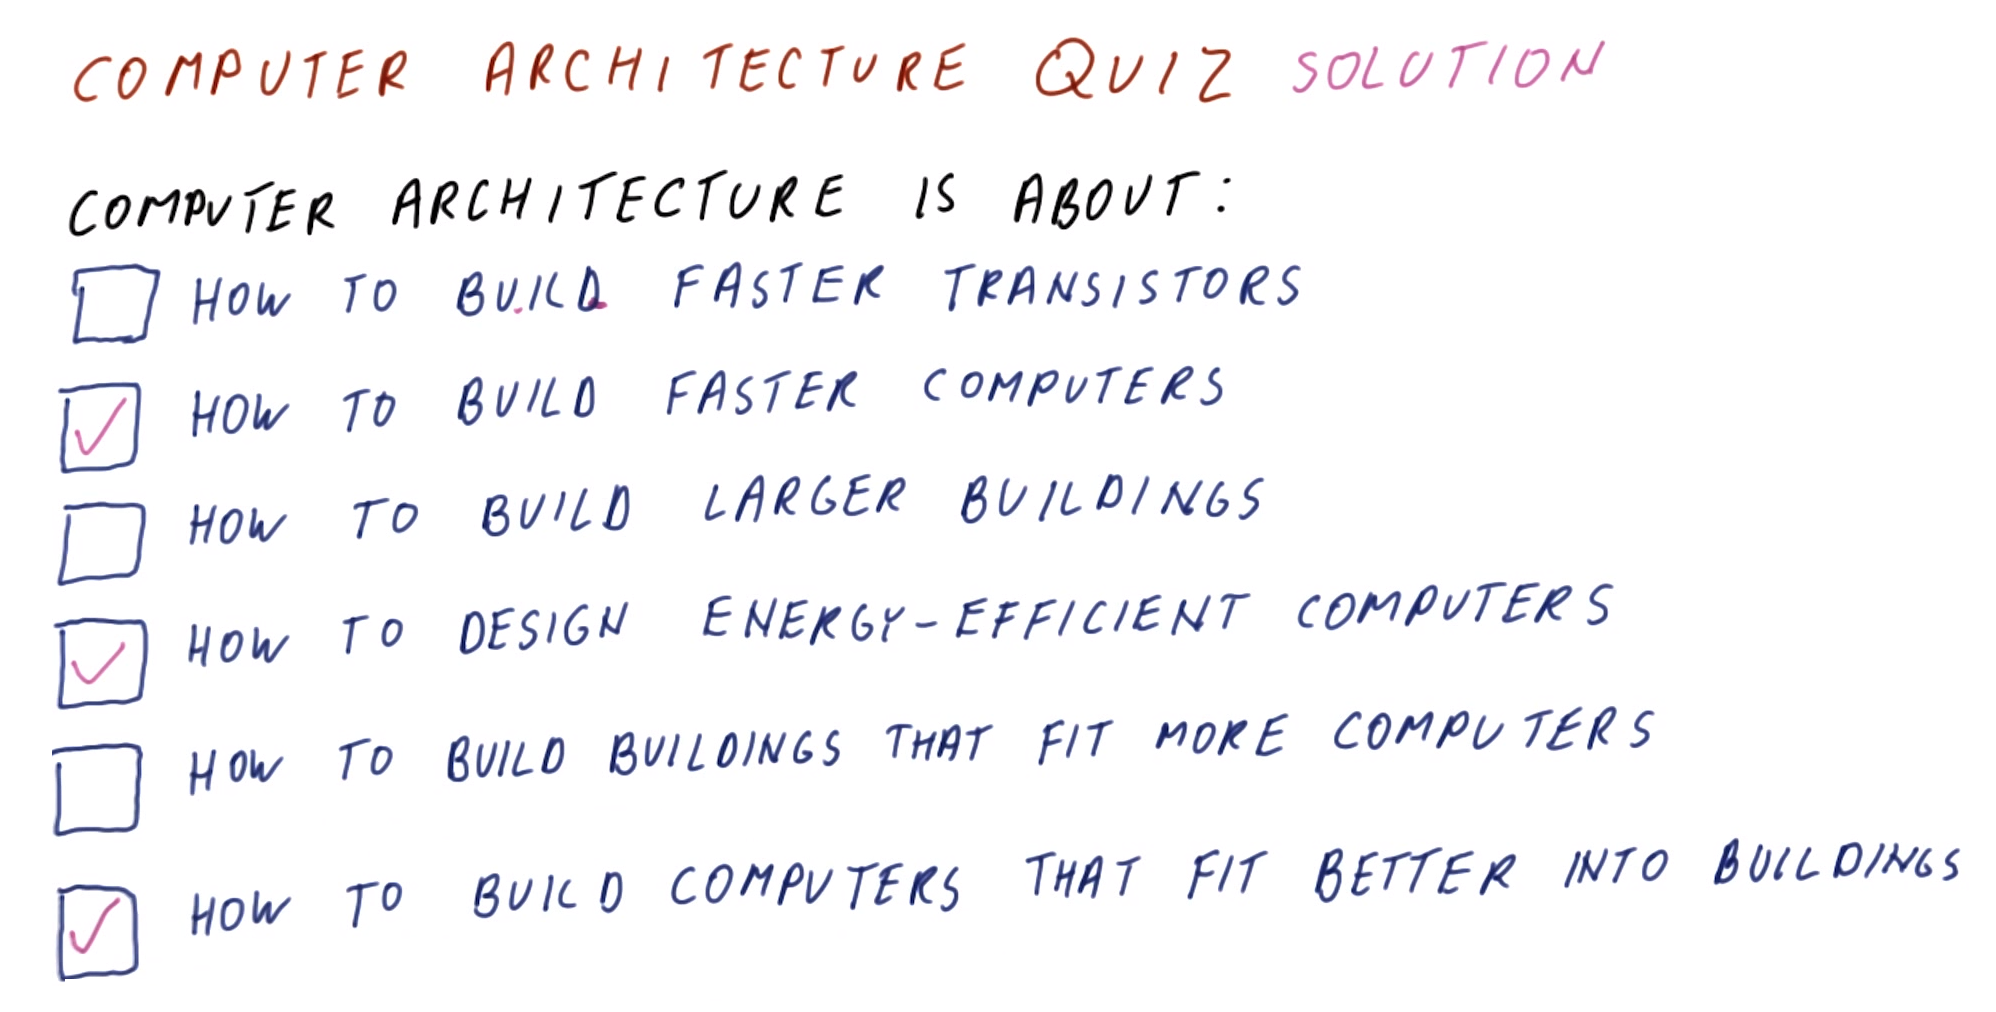 COMPUTER ARCHITECTURE QUIZ SOLUTION
COMPUTER ARCHITECTURE IS ABOUT:
HOW TO BUILD FASTER TRANSISTORS
HOW TO BUILD FASTER COMPUTERS
HOW TO BUILD LARGER BUILDINGS
HOW TO DESIGN ENERGY-EFFICIENT COMPUTERS
HOW TO BUILD BUILDINGS THAT FIT MORE COMPUTERS
HOW TO BUILD COMPUTERS THAT FIT BETTER INTO BUILDINGS